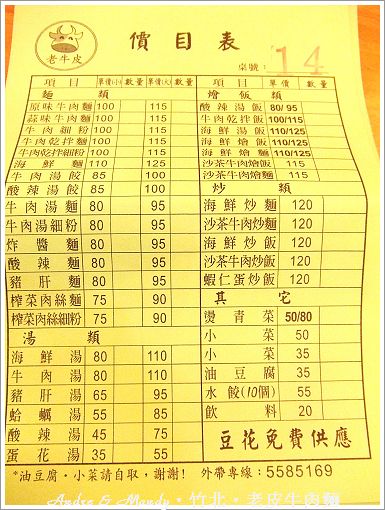 老牛皮
價目表
桌號: 14
項目 單價(小) 數量 單價(大) 數量
麵類
原味牛肉麵 100 115
蒜味牛肉麵 100 115
牛肉細粉 100 115
牛肉乾拌麵 100 115
牛肉乾拌細粉 100 115
海鮮麵 110 125
牛肉湯餃 85 100
酸辣湯餃 85 100
牛肉湯麵 80 95
牛肉湯細粉 80 95
炸醬麵 80 95
酸辣麵 80 95
豬肝麵 80 95
榨菜肉絲麵 75 90
榨菜肉絲細粉 75 90
湯類
海鮮湯 80 110
牛肉湯 80 110
豬肝湯 65 95
蛤蠣湯 55 85
酸辣湯 45 75
蛋花湯 35 55
項目 單價 數量
燴飯類
酸辣湯飯 80/95
牛肉乾拌飯 100/115
海鮮湯飯 110/125
海鮮燴麵 110/125
海鮮燴飯 110/125
沙茶牛肉燴飯 115
沙茶牛肉燴麵 115
炒類
海鮮炒麵 120
沙茶牛肉炒麵 120
海鮮炒飯 120
沙茶牛肉炒飯 120
蝦仁蛋炒飯 120
其它
燙青菜 50/80
小菜 50
小菜 35
油豆腐 35
水餃(10個) 55
飲料 20
豆花免費供應
*油豆腐·小菜請自取，謝謝! 外帶專線：5585169
Andre & Mandy·竹北·老皮牛肉麵